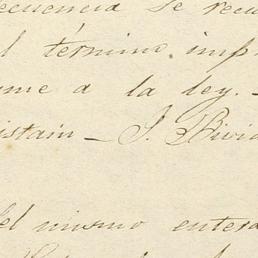 ecuencia se recu
l término imp
me a la ley. -
istain - J. Rivi
del mismo entera